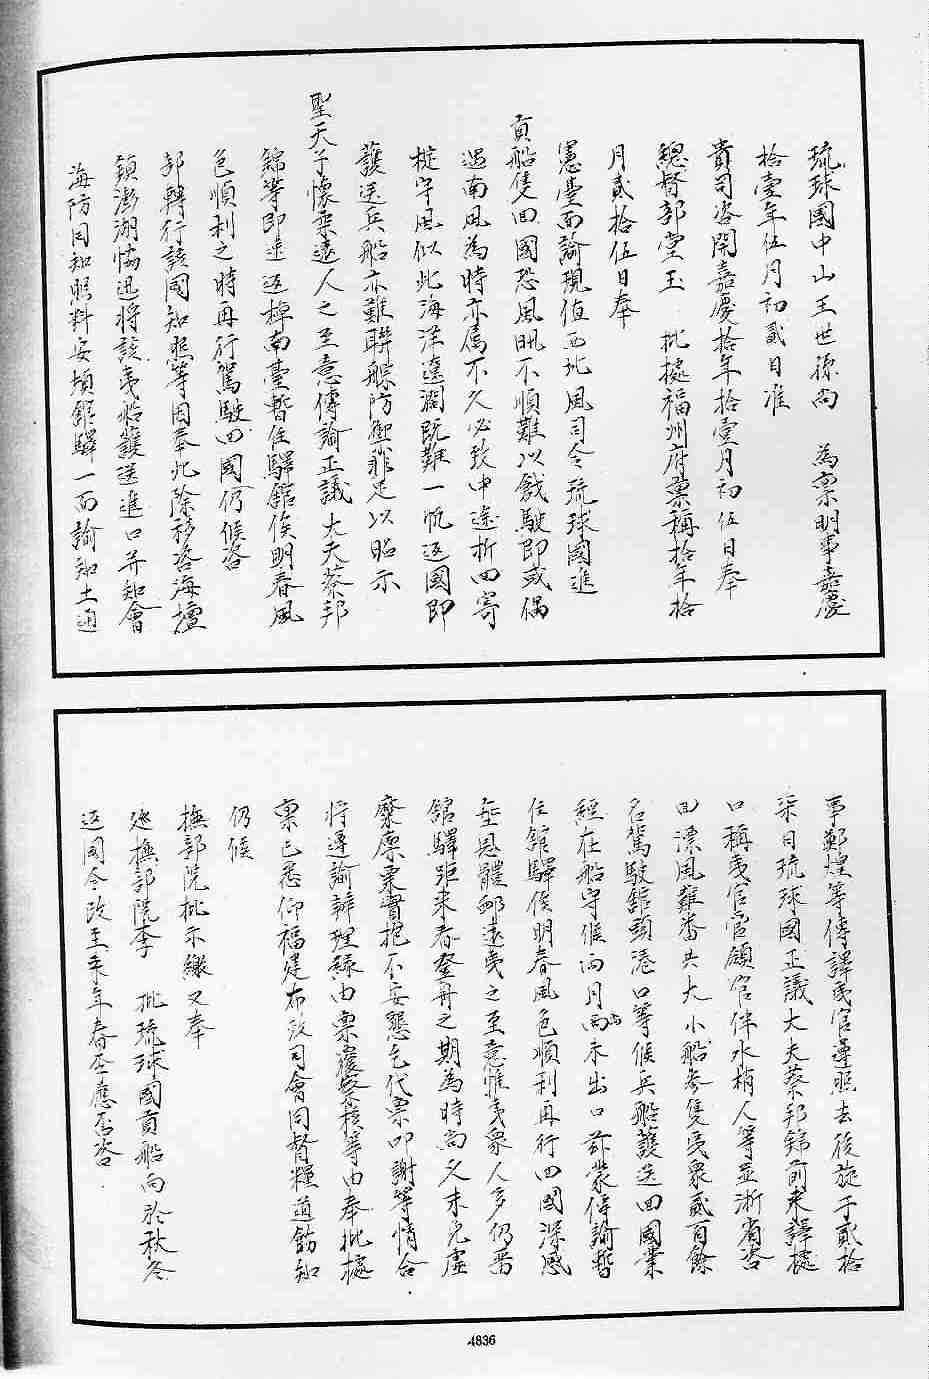 琉球國中山王世孫尚 為稟明事嘉慶
拾壹年伍月初貳日准
貴司咨開嘉慶拾年拾壹月初伍日奉
總督部堂玉 批據福州府稟稱拾年拾
月貳拾伍日奉
憲臺面諭現值西北風司令琉球國進
貢船隻回國恐風帆不順難以戧駛即或偶
遇南風為時亦属不久必致中途折回寄
椗守風似此海洋遠濶既難一帆返國即
護送兵船亦難聯䑸防禦非足以昭示
聖天子懷柔遠人之至意傳諭正議大夫蔡邦
錦等即速返棹南臺暫住驛舘俟明春風
色順利之時再行駕駛回國仍候咨
部轉行該國知照等因奉此除移咨海壇
鎮澎湖協迅將該夷船護送進口并知會
海防同知照料安頓舘驛一面諭知土通
事鄭煌等傳譯夷官遵照去後旋于貳拾
柒日琉球國正議大夫蔡邦錦前來譯據
口稱夷官官顧官伴水梢人等並浙省咨
回漂風難番共大小船参隻夷衆貳百餘
名駕駛舘頭港口等候兵船護送回國業
經在船守候兩月而尚未出口茲蒙傳諭暫
住舘驛俟明春風色順利再行回國深感
至恩體䘏遠夷之至意惟夷衆人多仍番
舘驛距来春登舟之期為時尚久未免虛
糜廩粟實抱不安懇乞代稟叩謝等情合
將遵諭辦理緣由稟覆察核等由奉批據
稟已悉仰福建布政司會同督糧道飭知
仍候
撫部院批示繳又奉
廵撫部院李 批琉球國貢船向於秋冬
返國今改至来年春至應否咨
4836